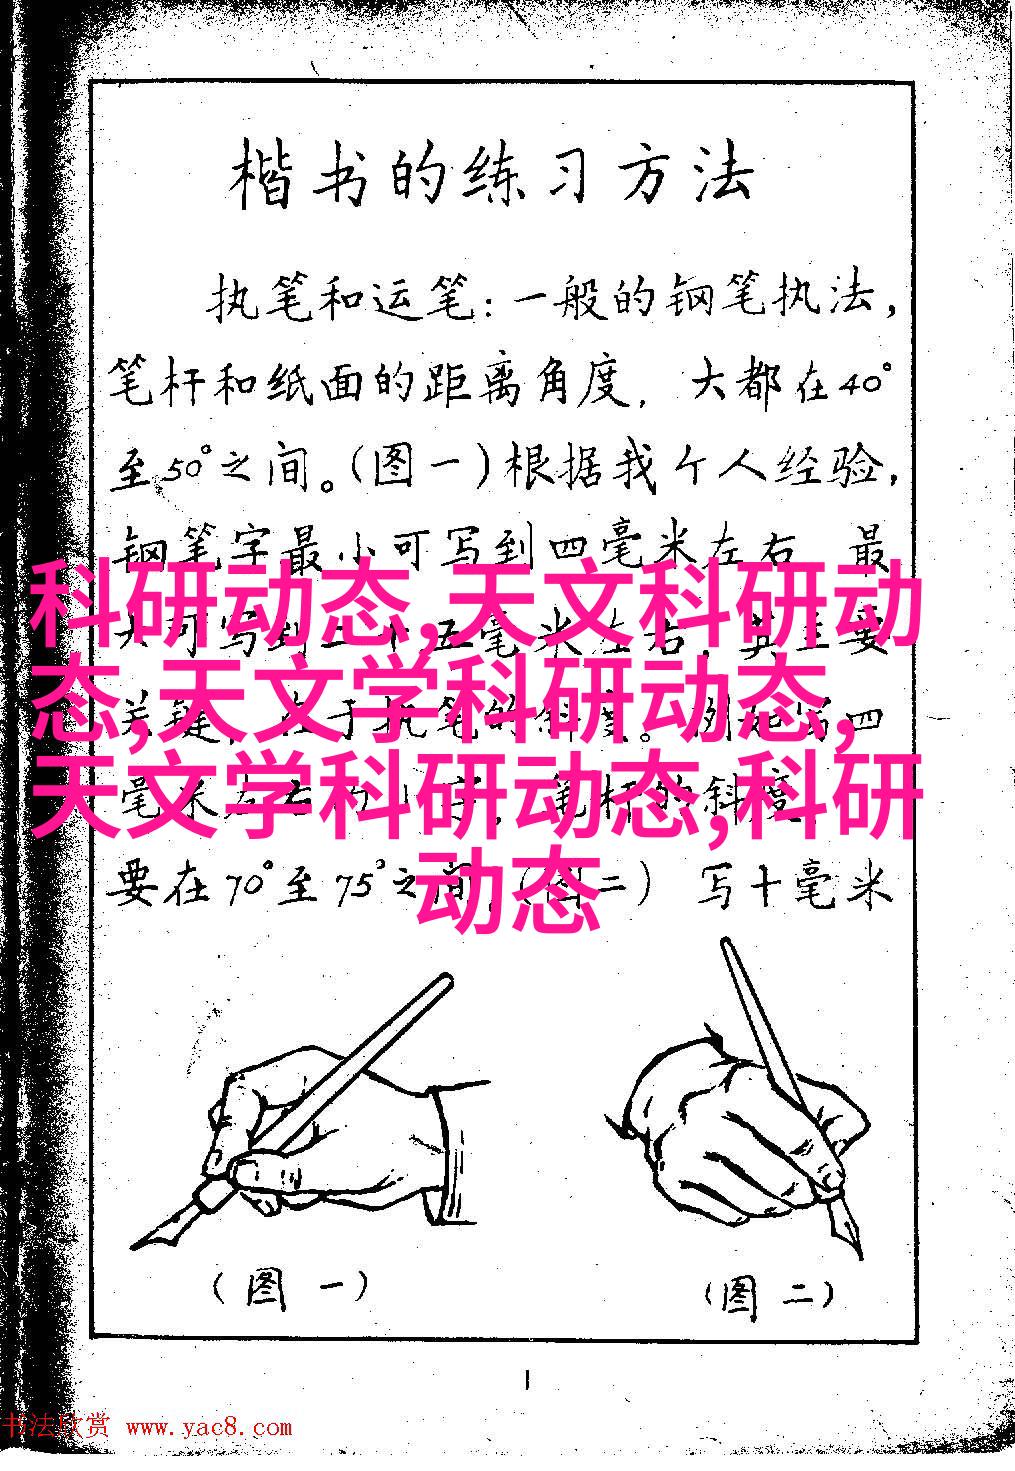 楷书的练习方法
执笔和运笔:一般的钢笔执法,
笔杆和纸面的距离角度,大都在40°
至50°之间。(图一)根据我个人经验,
钢笔字最小可写到四毫米左右 最
科研动态,天文科研动
态,天文学科研动态,
天文学科研动态,科研
动态
要在70°至75°之间 (图二) 写十毫米
(图一)
(图二)
1
书法欣赏 www.yac8.com